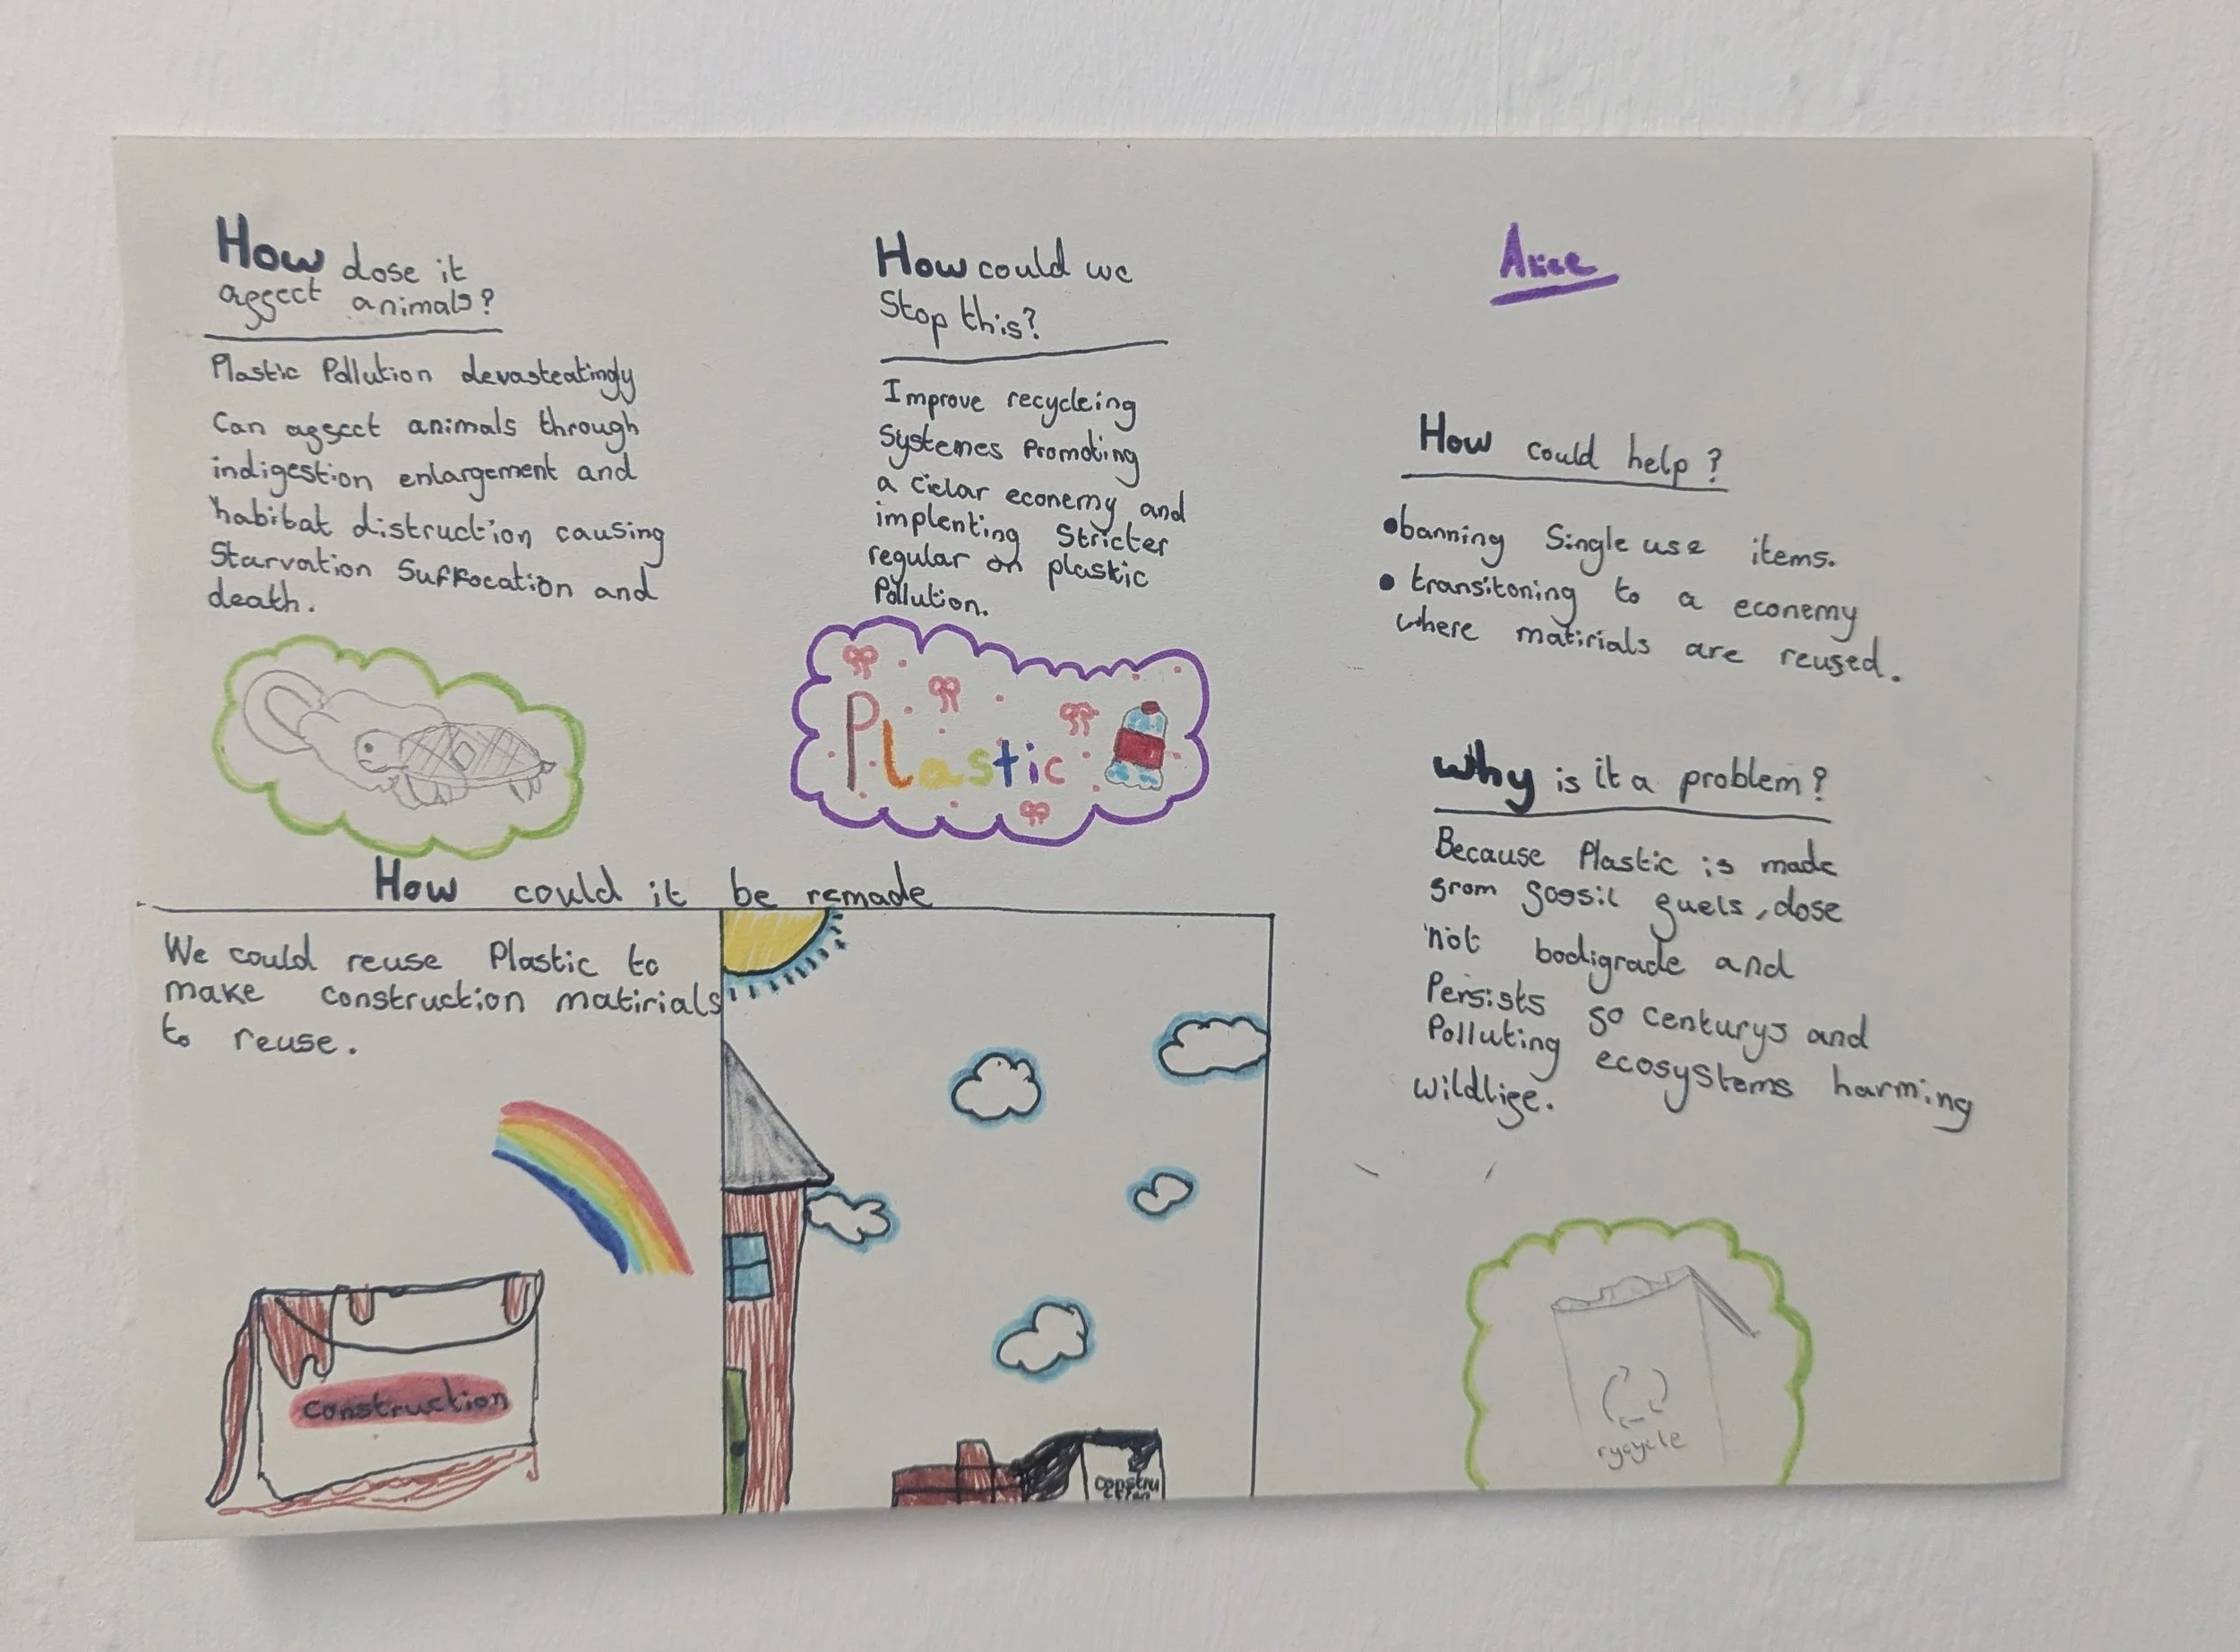 How dose it
affect animals?
Plastic Pollution devasteatingly
Can affect animals through
indigestion enlargement and
habitat distruction causing
Starvation Suffocation and
death.
How could we
Stop this?
Improve recycleing
Systemes Promoting
a ciclar econemy and
implenting Stricter
regular on plastic
Pollution.
Plastic
Alice
How could help?
•banning Single use items.
• transitoning to a econemy
where matirials are reused.
Why is it a problem?
Because Plastic is made
from fossil fuels, dose
not bodigrade and
Persists fo centurys and
Polluting ecosystems harming
wildlife.
rycycle
How could it be remade
We could reuse Plastic to
make construction matirials
to reuse.
construction
constru
ction